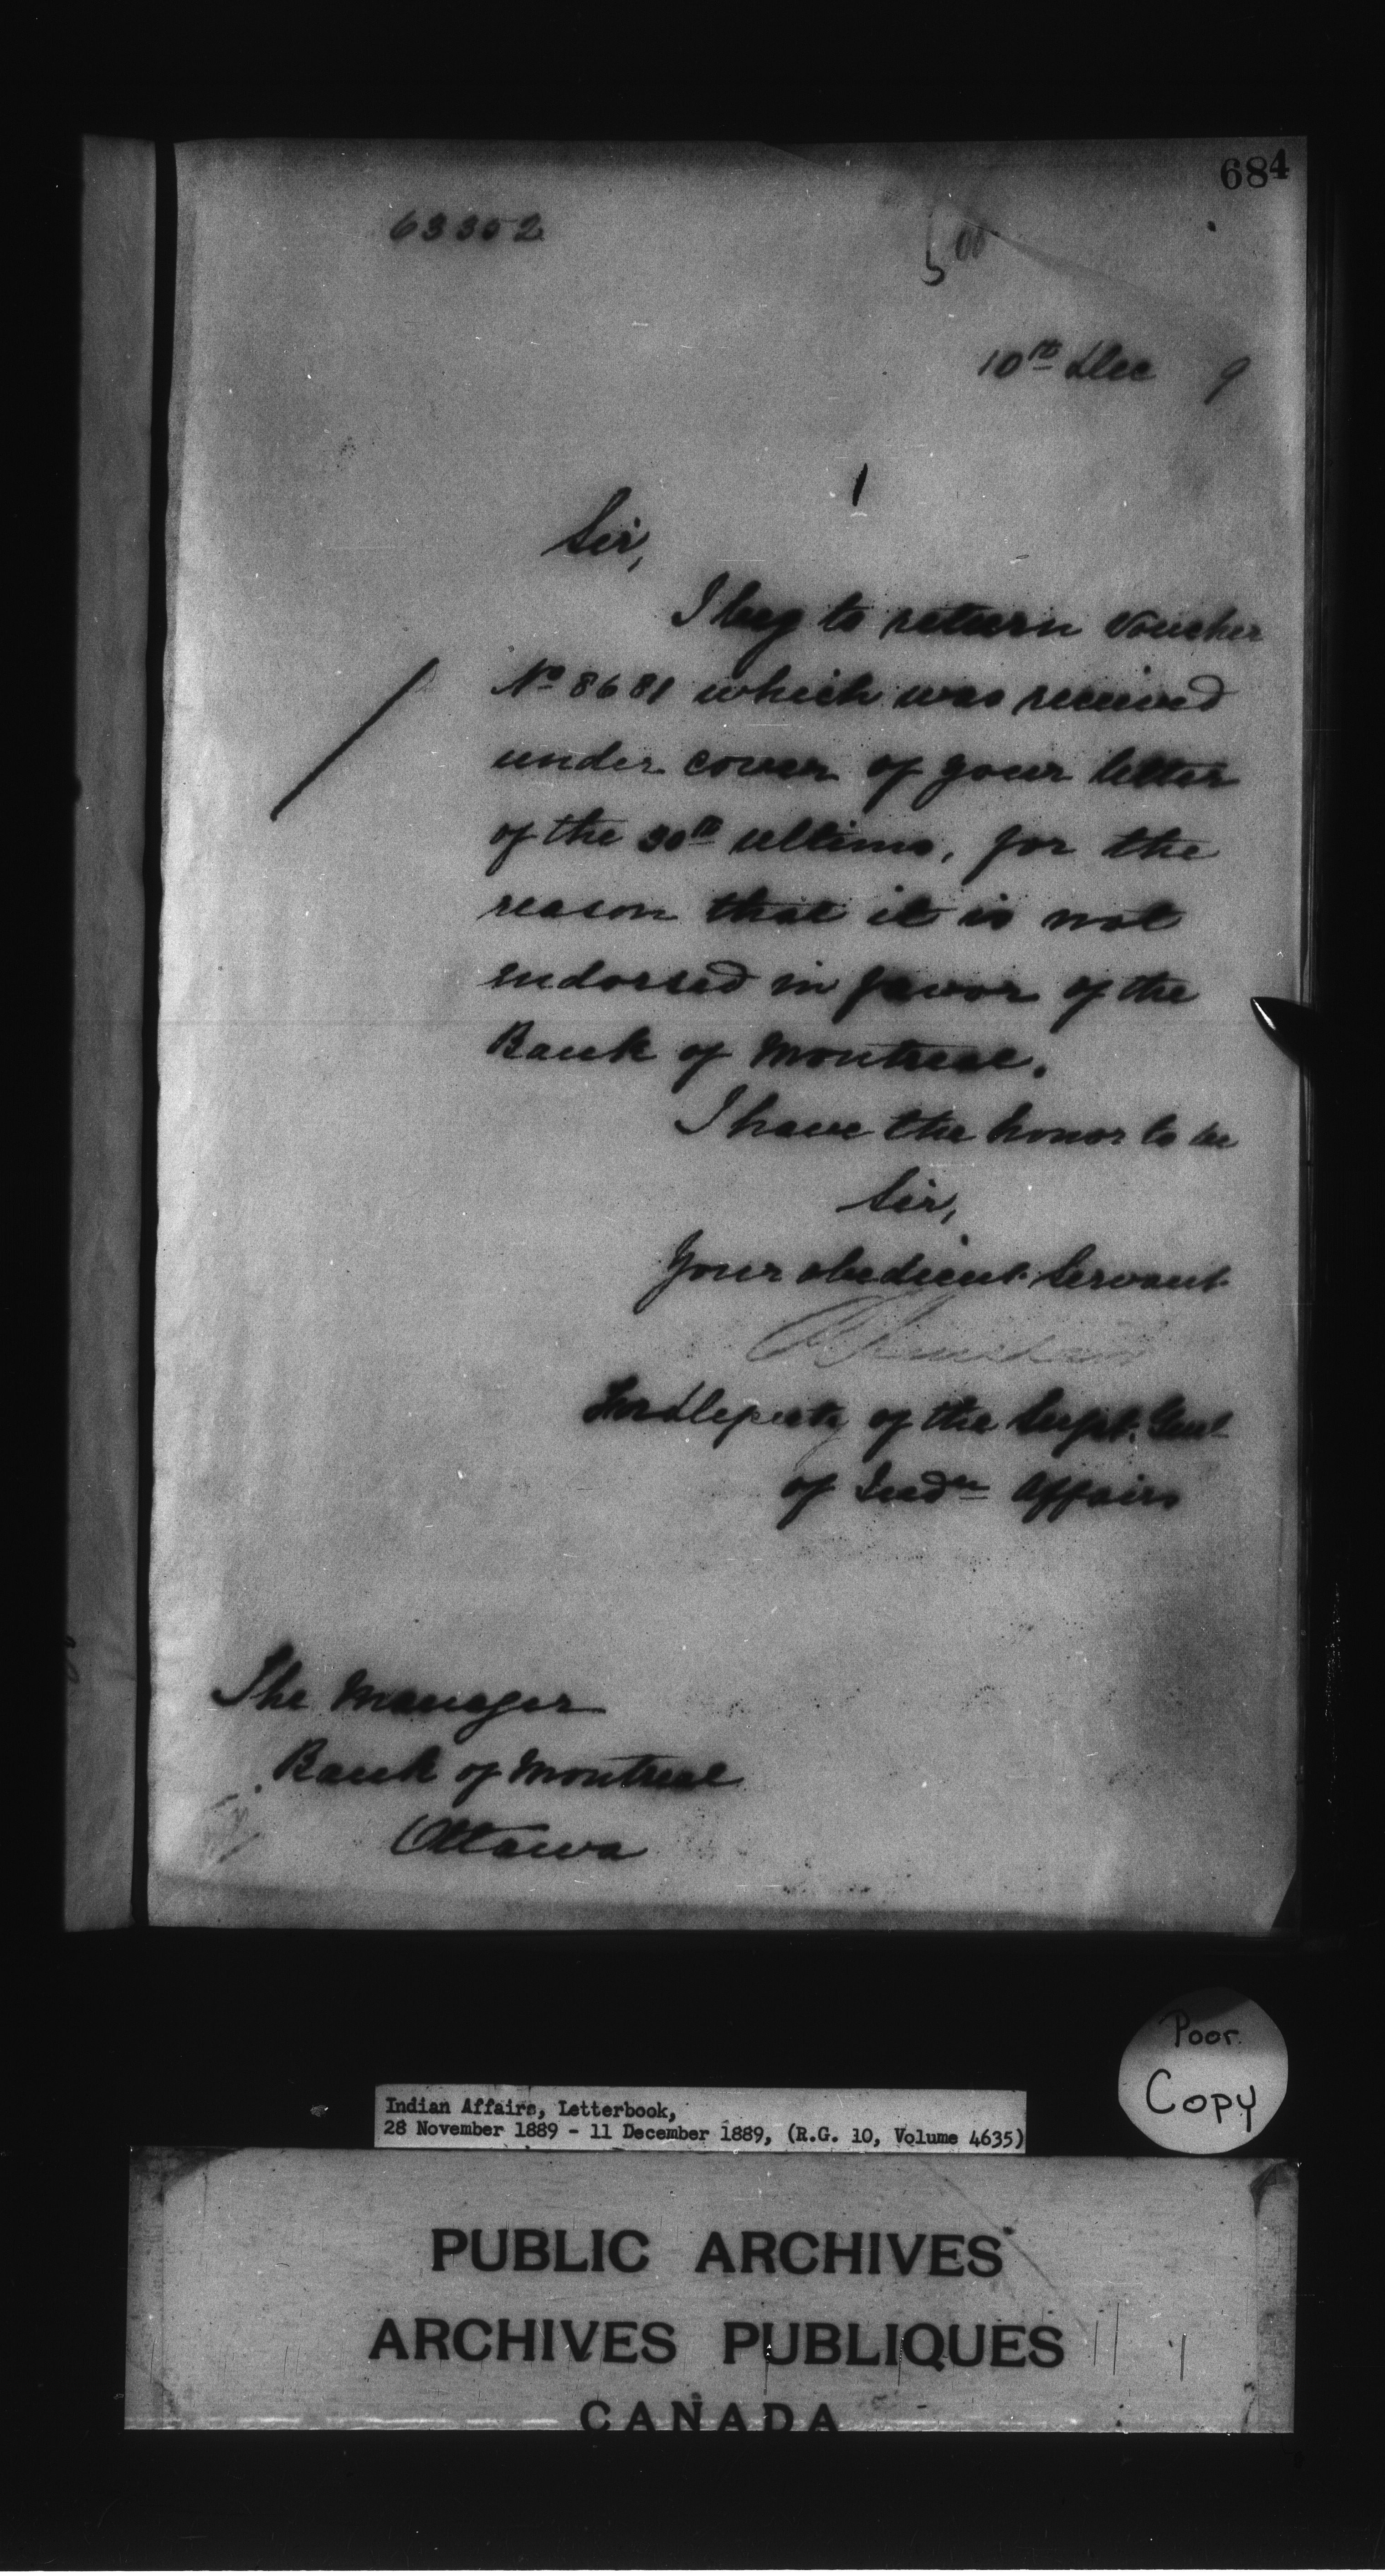 684
63302
10th Dec 9
Sir,
I beg to return Voucher
No 8681 which was received
under cover of your letter
of the 30th ultimo, for the
reason that it is not
endorsed in favor of the
Bank of Montreal.
I have the honor to be
Sir,
Your obedient Servant
For Deputy of the Supt. Genl
of Indn Affairs
The Manager
Bank of Montreal
Ottawa
Poor
Copy
Indian Affairs, Letterbook,
28 November 1889 - 11 December 1889, (R.G. 10, Volume 4635)
PUBLIC ARCHIVES
ARCHIVES PUBLIQUES
CANADA